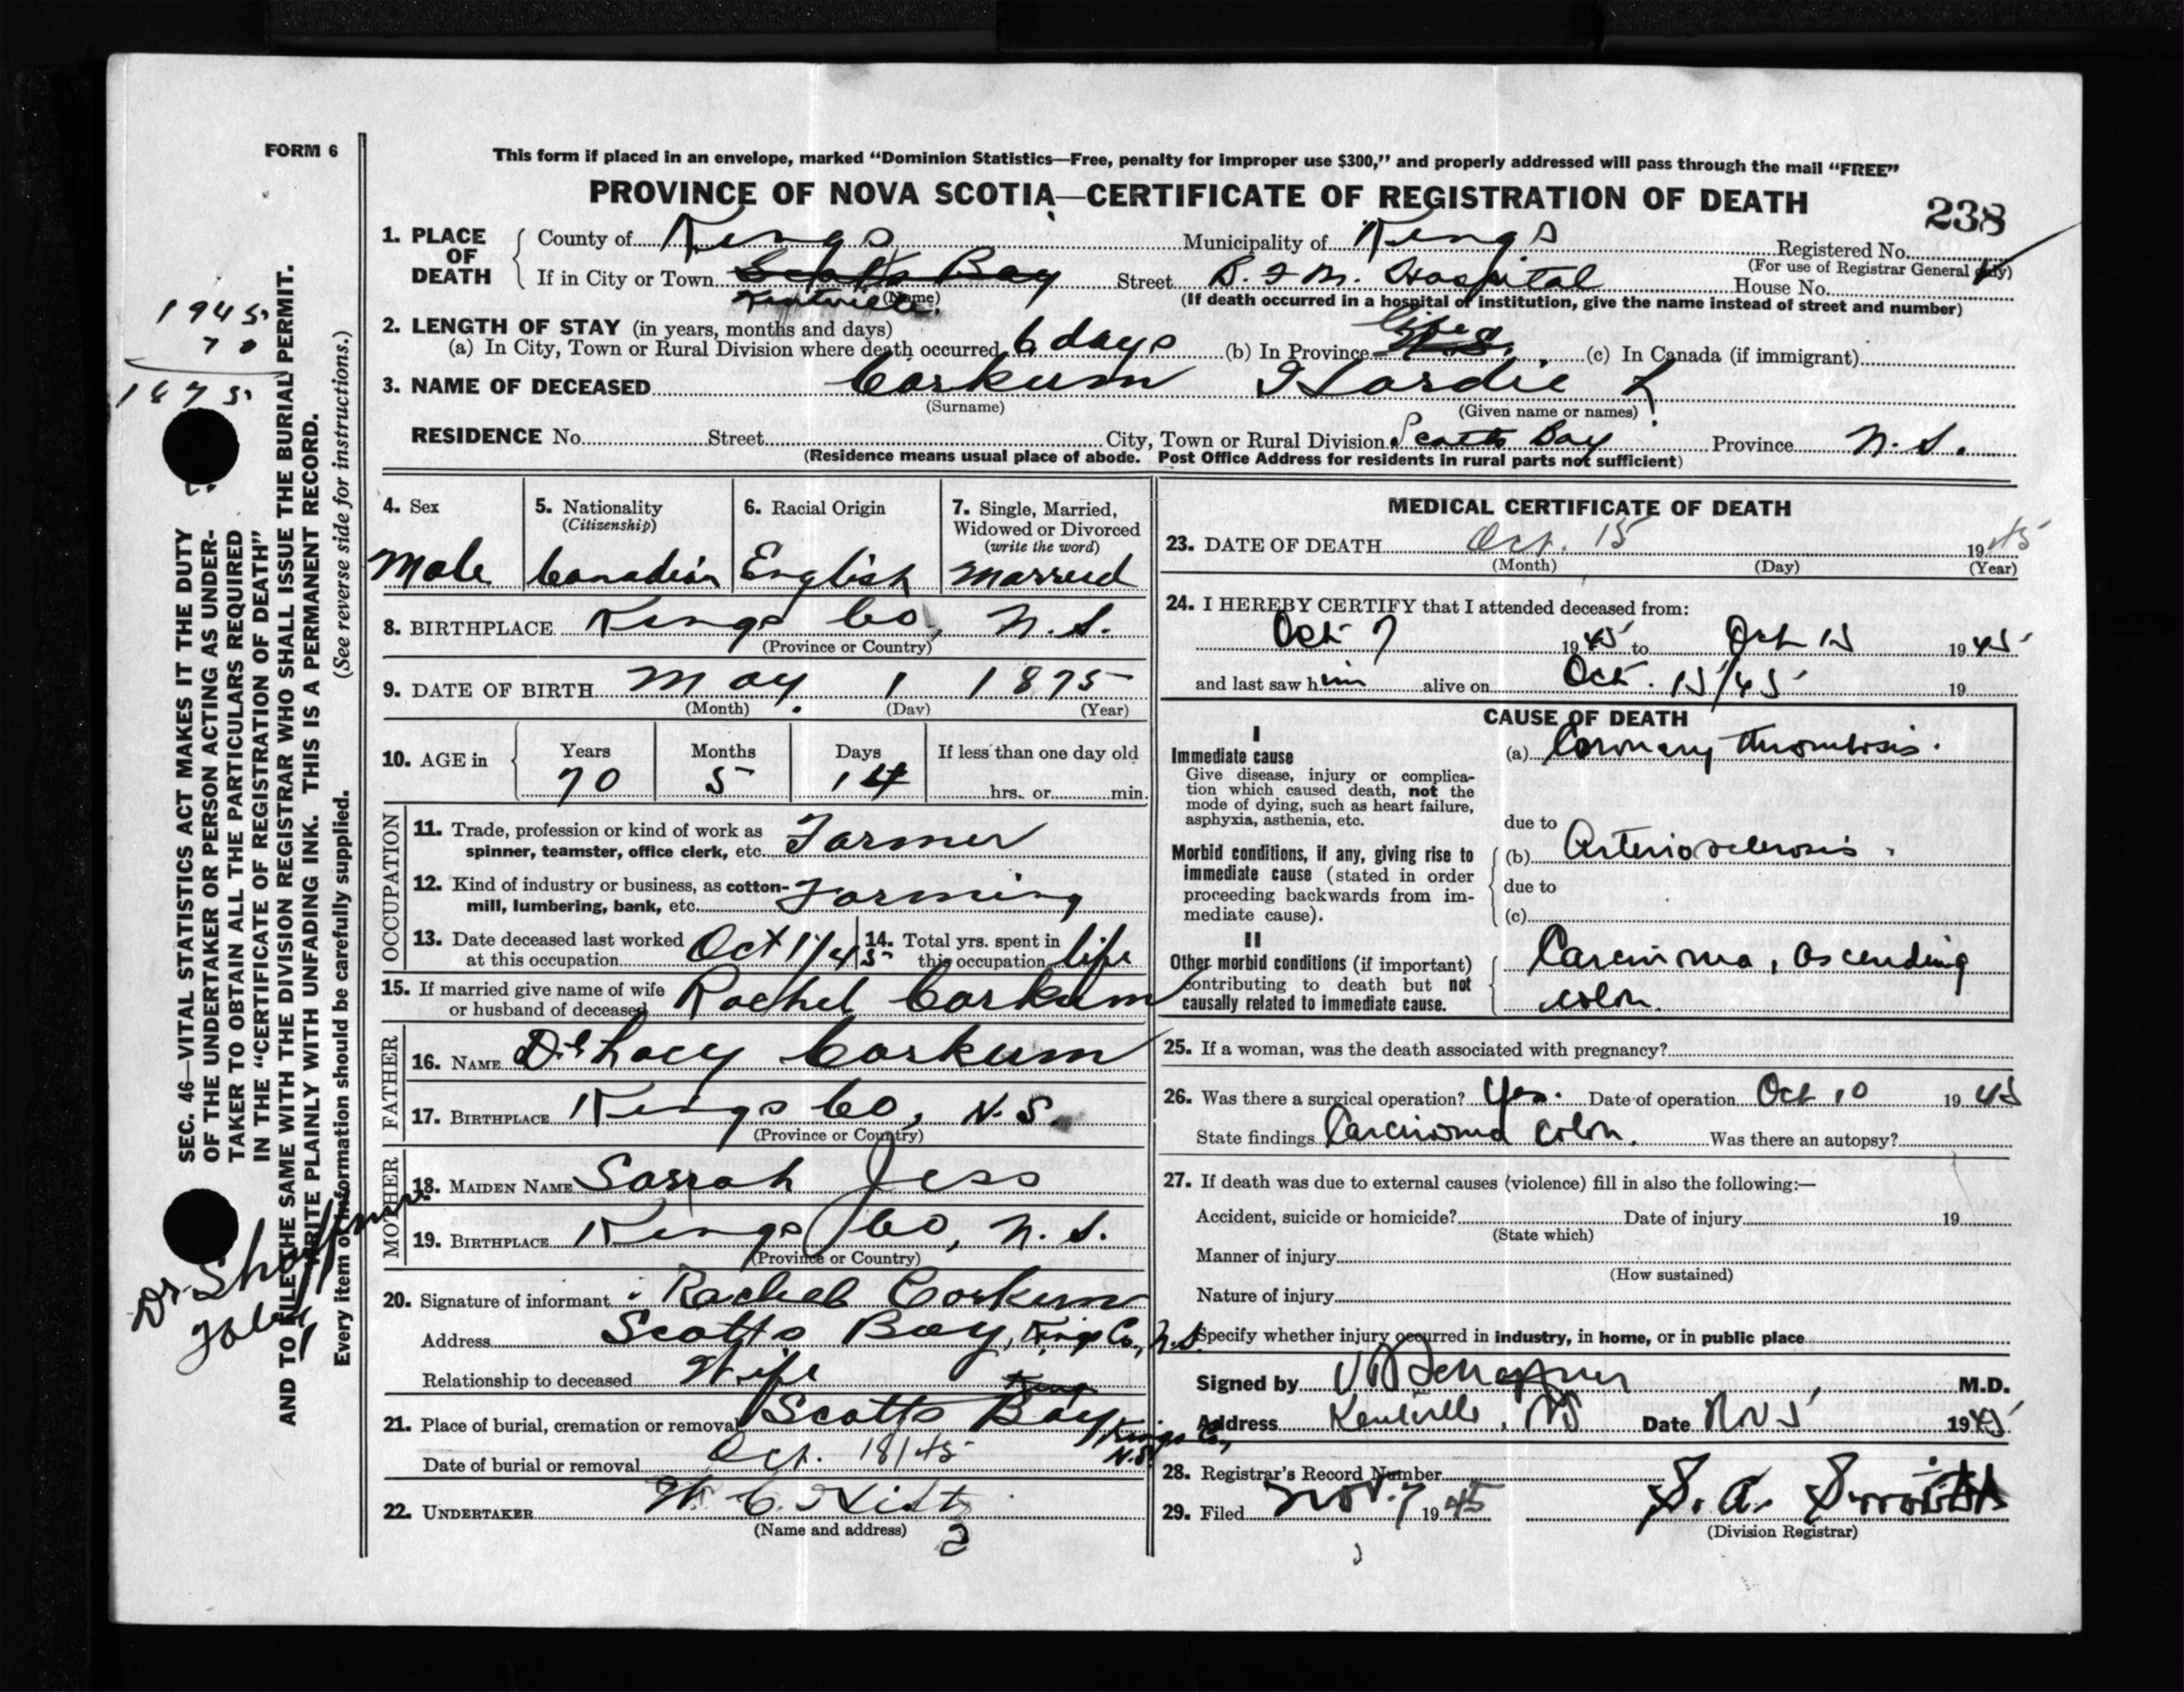 FORM 6
This form if placed in an envelope, marked "Dominion Statistics—Free, penalty for improper use $300," and properly addressed will pass through the mail "FREE"
PROVINCE OF NOVA SCOTIA—CERTIFICATE OF REGISTRATION OF DEATH
238
1. PLACE OF DEATH
County of Kings Municipality of Kings Registered No.
(For use of Registrar General only)
If in City or Town Scotts Bay Street B. F. M. Hospital House No.
Kentville. (Name) (If death occurred in a hospital or institution, give the name instead of street and number)
2. LENGTH OF STAY (in years, months and days)
(a) In City, Town or Rural Division where death occurred 6 days (b) In Province N.S. life (c) In Canada (if immigrant)
3. NAME OF DECEASED Corkum Hardie L
(Surname) (Given name or names)
RESIDENCE No. Street City, Town or Rural Division Scotts Bay Province N.S.
(Residence means usual place of abode. Post Office Address for residents in rural parts not sufficient)
1945
70
1875
SEC. 46—VITAL STATISTICS ACT MAKES IT THE DUTY
OF THE UNDERTAKER OR PERSON ACTING AS UNDER-
TAKER TO OBTAIN ALL THE PARTICULARS REQUIRED
IN THE "CERTIFICATE OF REGISTRATION OF DEATH"
AND TO FILE THE SAME WITH THE DIVISION REGISTRAR WHO SHALL ISSUE THE BURIAL PERMIT.
WRITE PLAINLY WITH UNFADING INK. THIS IS A PERMANENT RECORD.
Every item of information should be carefully supplied. (See reverse side for instructions.)
Dr. Shaffner
4. Sex
Male
5. Nationality
(Citizenship)
Canadian
6. Racial Origin
English
7. Single, Married,
Widowed or Divorced
(write the word)
Married
8. BIRTHPLACE Kings Co, N.S.
(Province or Country)
9. DATE OF BIRTH May 1 1875
(Month) (Day) (Year)
10. AGE in Years Months Days If less than one day old
70 5 14 hrs. or min.
OCCUPATION
11. Trade, profession or kind of work as
spinner, teamster, office clerk, etc. Farmer
12. Kind of industry or business, as cotton-
mill, lumbering, bank, etc. Farming
13. Date deceased last worked
at this occupation Oct 1/45
14. Total yrs. spent in
this occupation life
15. If married give name of wife
or husband of deceased Rachel Corkum
FATHER
16. NAME Corkum
17. BIRTHPLACE Kings Co, N.S.
(Province or Country)
MOTHER
18. MAIDEN NAME Sarrah Jess
19. BIRTHPLACE Kings Co, N.S.
(Province or Country)
20. Signature of informant Rachel Corkum
Address Scotts Bay, Kings Co., N.S.
Relationship to deceased Wife
21. Place of burial, cremation or removal Scotts Bay Kings Co., N.S.
Date of burial or removal Oct. 18/45
22. UNDERTAKER W. C. Hiltz
(Name and address)
2
MEDICAL CERTIFICATE OF DEATH
23. DATE OF DEATH Oct. 15 1945
(Month) (Day) (Year)
24. I HEREBY CERTIFY that I attended deceased from:
Oct 7 1945 to Oct 15 1945
and last saw him alive on Oct. 15/45 19
CAUSE OF DEATH
I
Immediate cause
Give disease, injury or complica-
tion which caused death, not the
mode of dying, such as heart failure,
asphyxia, asthenia, etc.
(a) Coronary thrombosis.
due to
Morbid conditions, if any, giving rise to
immediate cause (stated in order
proceeding backwards from im-
mediate cause).
(b) Arteriosclerosis.
due to
(c)
II
Other morbid conditions (if important)
contributing to death but not
causally related to immediate cause.
Carcinoma, ascending
colon.
25. If a woman, was the death associated with pregnancy?
26. Was there a surgical operation? Yes. Date of operation Oct 10 1945
State findings Carcinoma colon. Was there an autopsy?
27. If death was due to external causes (violence) fill in also the following:—
Accident, suicide or homicide? Date of injury 19
(State which)
Manner of injury
(How sustained)
Nature of injury
Specify whether injury occurred in industry, in home, or in public place
Signed by M.D.
Address Kentville, NS Date Nov 5 1945
28. Registrar's Record Number
29. Filed Nov. 7 1945 S. A.
(Division Registrar)